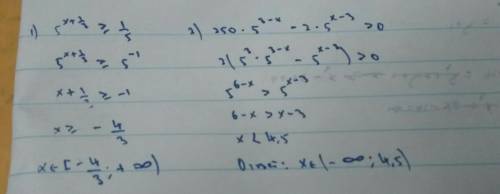 1) 5^{x+1/3} ≥ 1/5
5^{x+1/3} ≥ 5^{-1}
x + 1/3 ≥ -1
x ≥ - 4/3
x ∈ [- 4/3; +∞)
2) 250 · 5^{3-x} - 2 · 5^{x-3} > 0
2(5^3 · 5^{3-x} - 5^{x-3}) > 0
5^{6-x} > 5^{x-3}
6-x > x-3
x < 4,5
Ответ: x ∈ (-∞; 4,5)